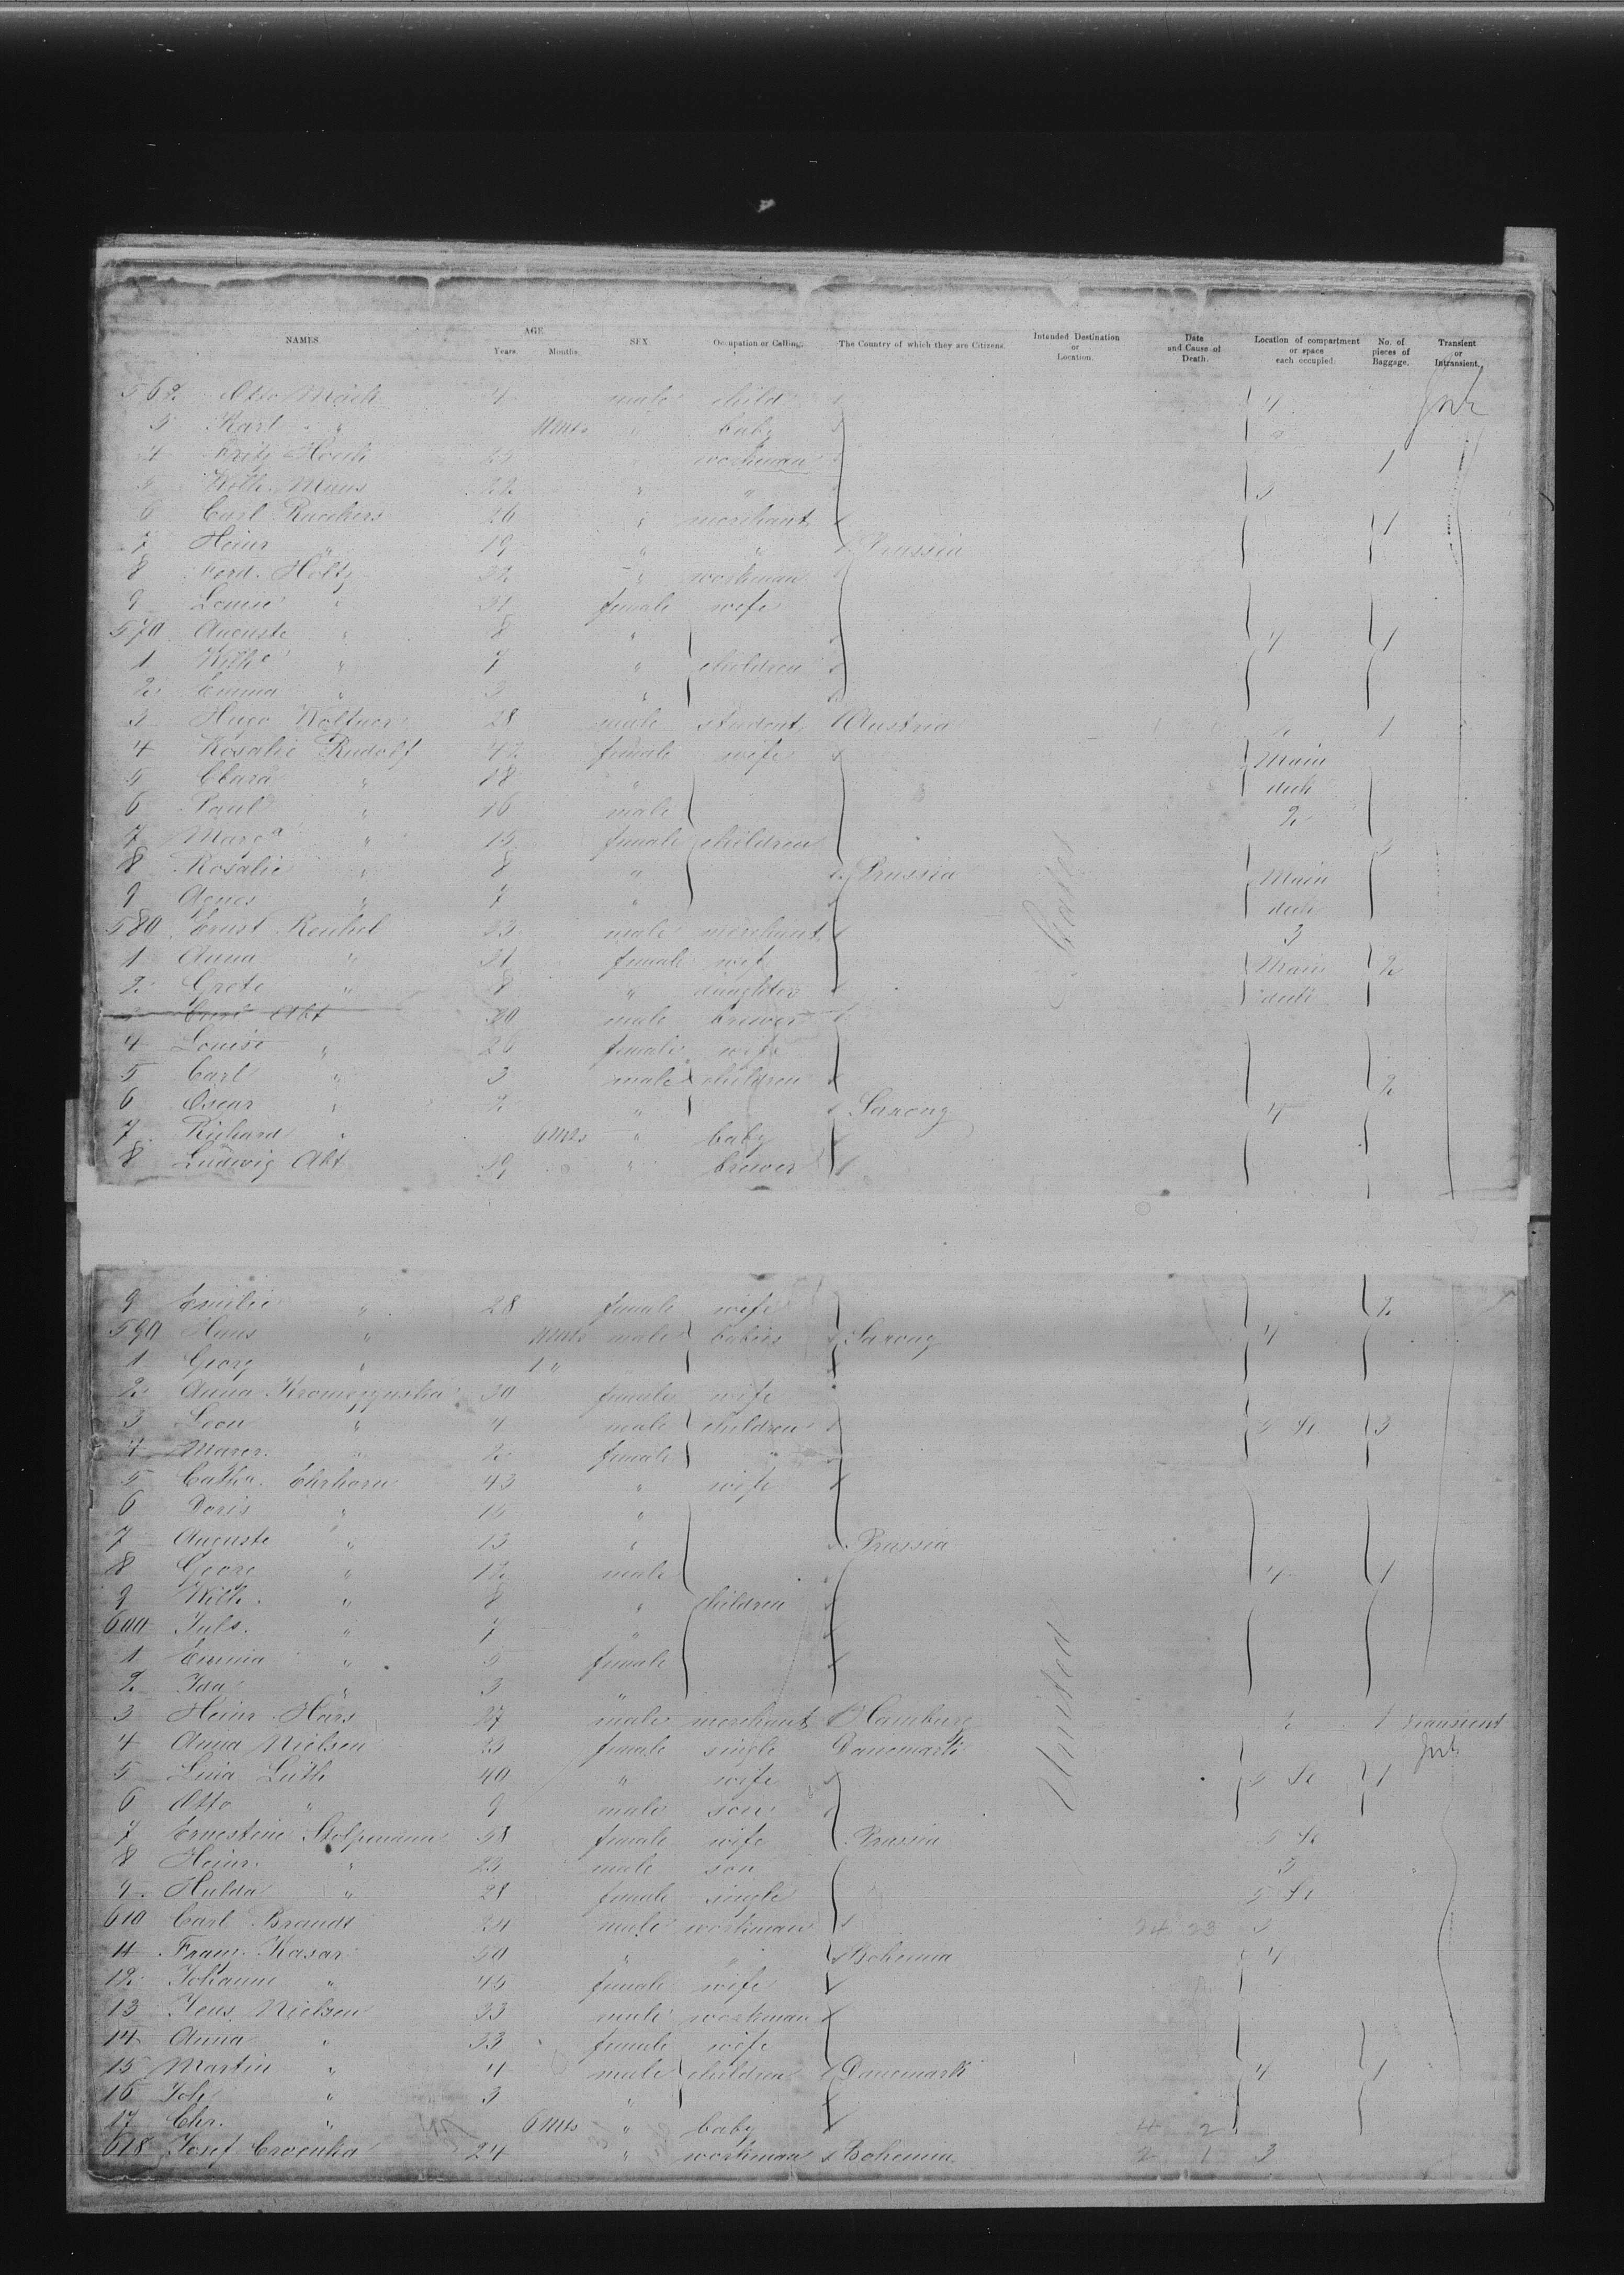 NAMES. AGE Years. Months. SEX. Occupation or Calling. The Country of which they are Citizens. Intended Destination or Location. Date and Cause of Death. Location of compartment or space each occupied. No. of pieces of Baggage. Transient or Intransient.
562 Otto 4 male child 4
3 Karl " 11 mts " baby
4 Fritz " workman 1
5 Wilh. Maus 22 " " 3
6 Carl 26 " merchant 1
7 Heinr " 19 " " Prussia
8 Ferd. Holtz 32 " workman
9 Louise " 31 female wife
570 Auguste " 8 " 4 1
1 Wilh.e " 7 " children
2 Emma " 3 "
3 Hugo 28 male student Austria 1
4 Rosalie Rudolf 42 female wife Main
5 Clara " 18 " deck
6 Paul " 16 male 2
7 Marga " 15 female children
8 Rosalie " 8 " Prussia Main
9 Agnes " 7 " deck
580 Ernst 33 male merchant 3
1 Anna " 31 female wife Main 2
2 Grete " 8 " daughter deck
3 Carl Abt 30 male brewer
4 Louise " 26 female wife
5 Carl " 3 male children 2
6 Oscar " 2 " Saxony 4
7 Richard " 6 mts " baby
8 Ludwig Abt 29 " brewer
9 Emilie " 28 female wife 2
590 Hans " 11 mts male babies Saxony 4
1 Georg " 1 "
2 Anna 30 female wife
3 Leon " 4 male children 5 St 3
4 " 2 female "
5 Catha. Ehrhorn 43 " wife
6 Doris " 15 "
7 Auguste " 13 " Prussia
8 Georg " 12 male 4 1
9 Wilh. " 8 " children
600 Juls. " 7 "
1 Emma " 5 female
2 Ida " 3 "
3 Heinr. Hars 27 male merchant Hamburg 2 1 transient
4 Anna Nielsen 23 female single Danemark
5 Lina Lüth 40 " wife 5 St 1
6 Otto " 9 male son
7 Ernestine Stolpmann 58 female wife Prussia 5 St
8 Heinr. " 23 male son 3
9 Hulda " 28 female single 5 St
610 Carl Brandt 24 male workman 24 23 3
11 Franz Kasar 50 " " Bohemia 4
12 Johanne " 45 female wife
13 Jens Nielsen 33 male workman
14 Anna " 33 female wife
15 Martin " 4 male children Danemark 4 1
16 Joh. " 3 "
17 Chr. " 6 mts " baby 4 2
618 Josef 24 " workman Bohemia 2 1 3
United States